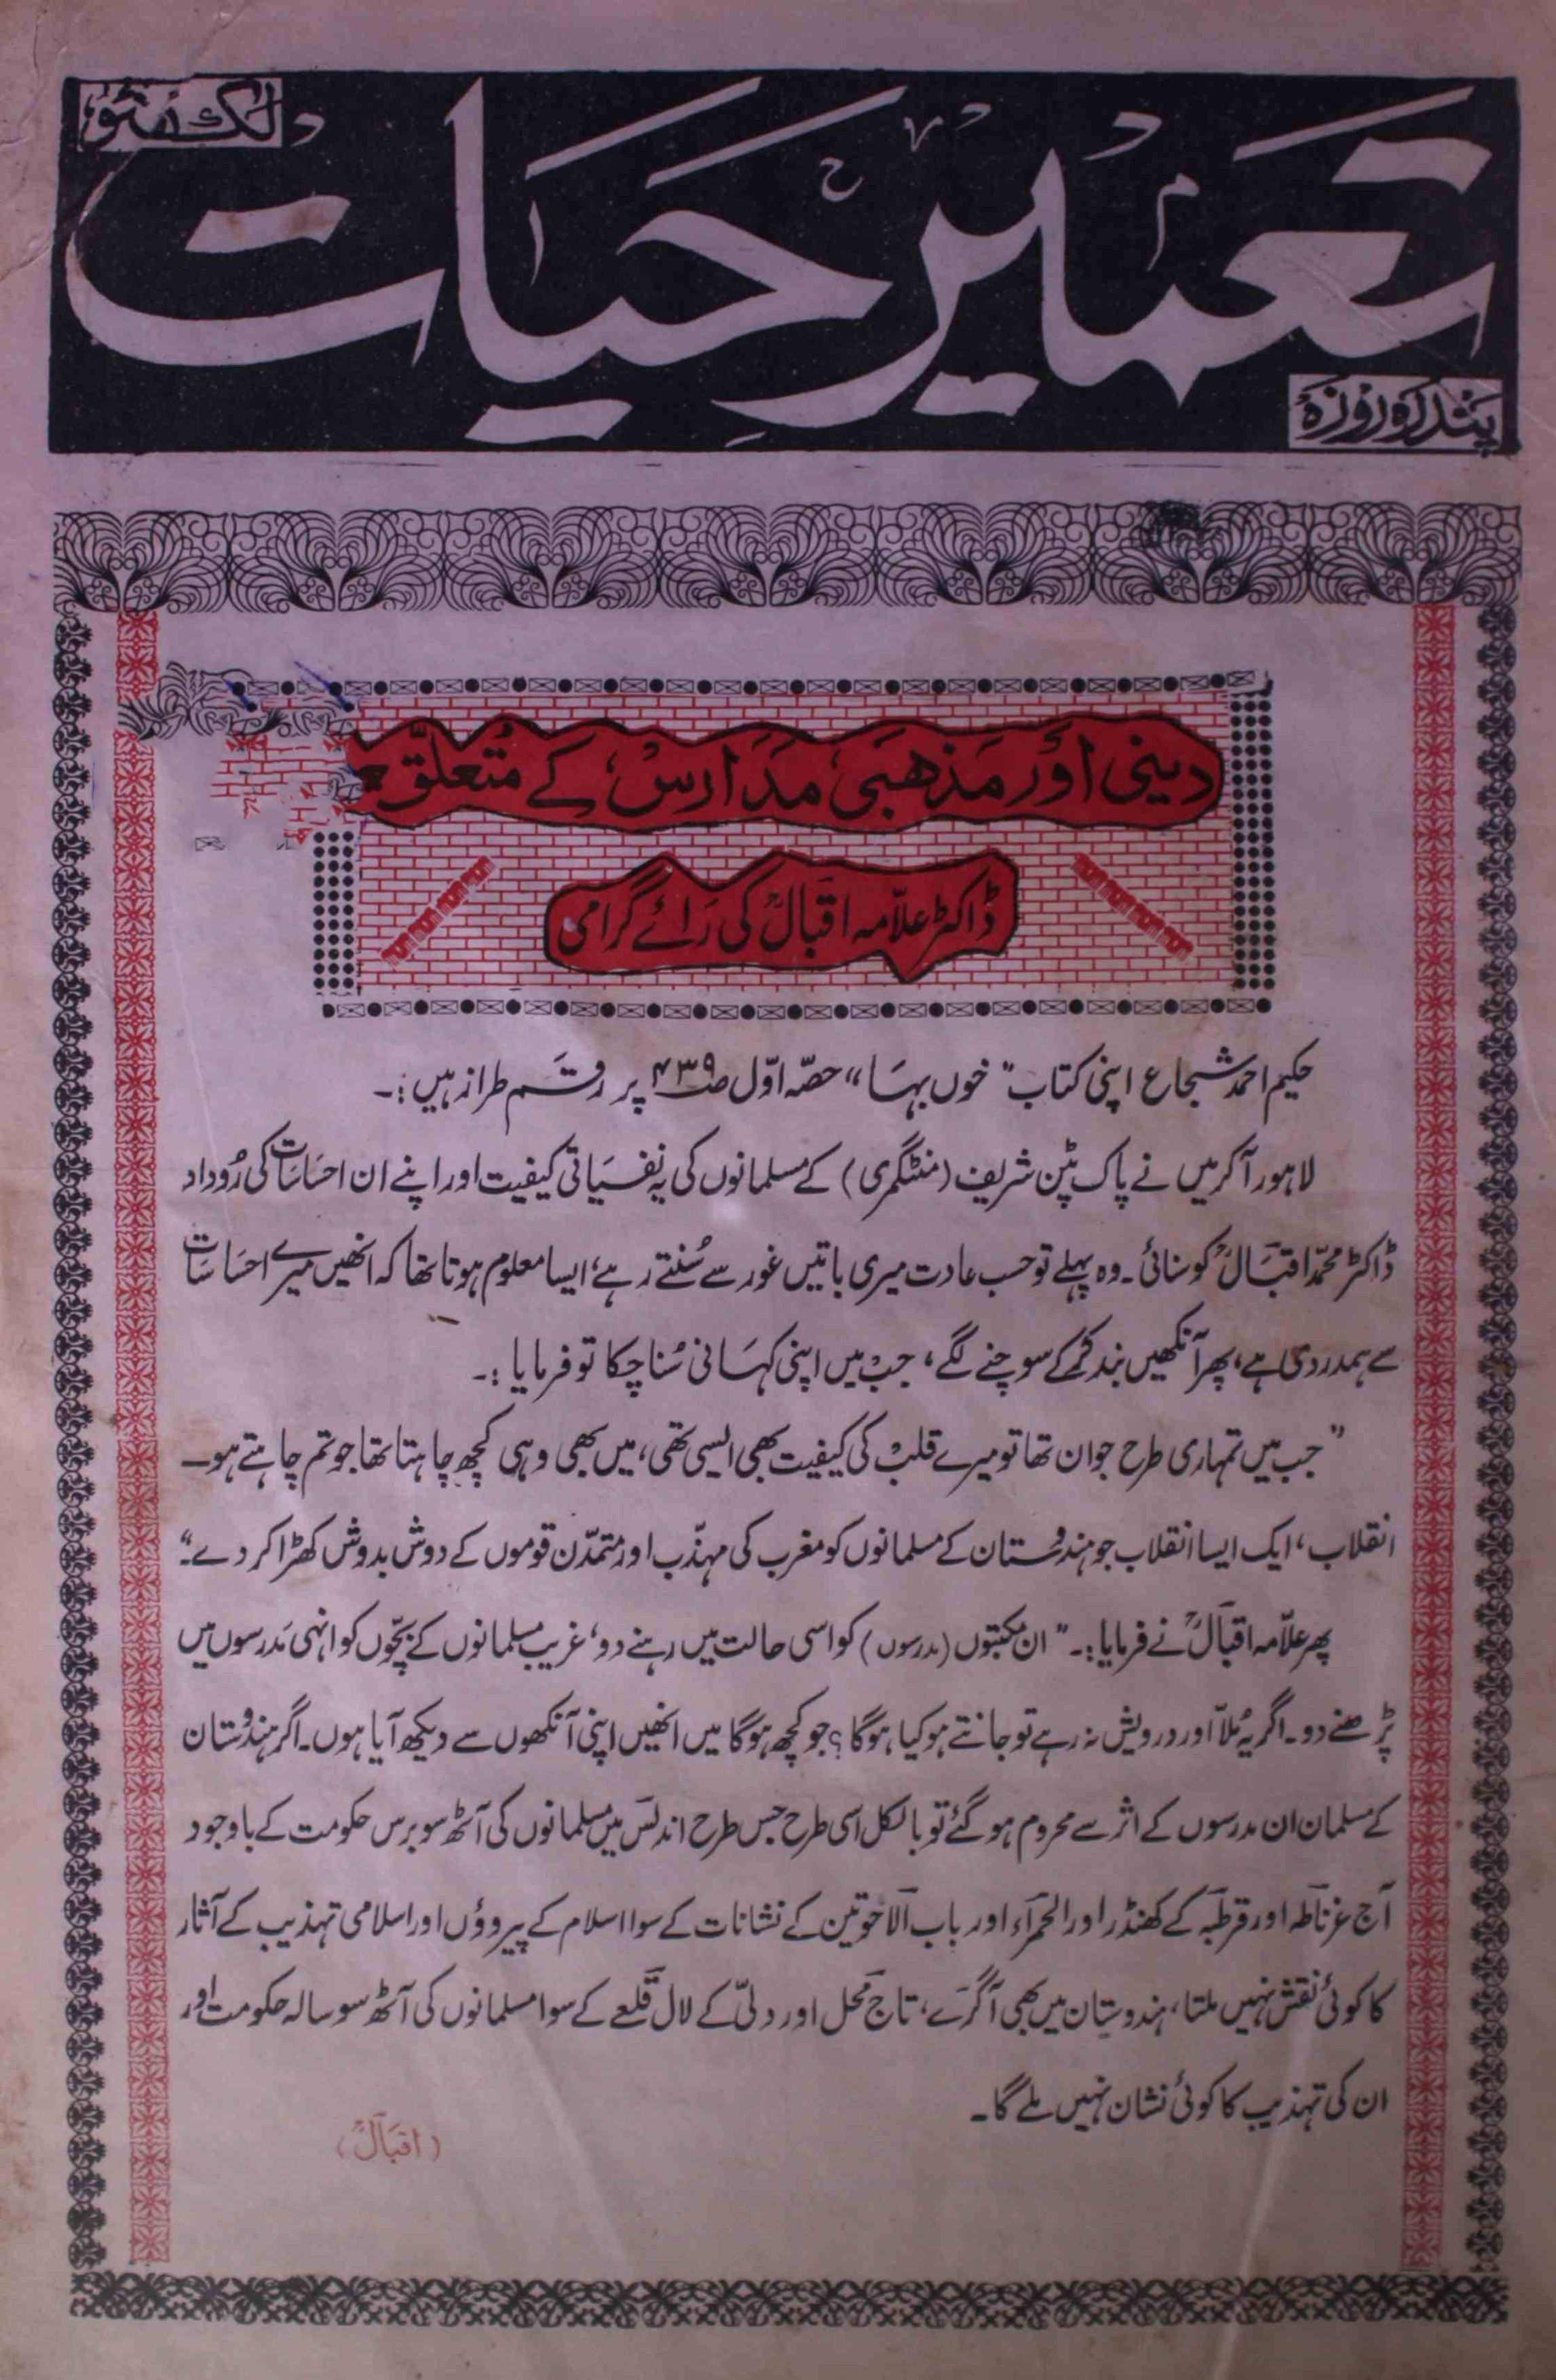 لکھنؤ
تعمیر حیات
پندرہ روزہ
دینی اور مذھبی مدارس کے متعلق
ڈاکٹر علاّمہ اقبالؒ کی رائے گرامی
حکیم احمد شجاع اپنی کتاب "خوں بہا" حصّہ اوّل ص۴۳۹ پر رقم طراز ہیں :۔
لاہور آکر میں نے پاک پٹن شریف (منٹگمری) کے مسلمانوں کی یہ نفسیاتی کیفیت اور اپنے ان احساسات کی رُوداد
ڈاکٹر محمّد اقبالؒ کو سنائی۔ وہ پہلے تو حسب عادت میری باتیں غور سے سُنتے رہے، ایسا معلوم ہوتا تھا کہ انھیں میرے احساسات
سے ہمدردی ہے، پھر آنکھیں بند کرکے سوچنے لگے، جب میں اپنی کہانی سُنا چکا تو فرمایا :۔
"جب میں تمہاری طرح جوان تھا تو میرے قلب کی کیفیت بھی ایسی تھی، میں بھی وہی کچھ چاہتا تھا جو تم چاہتے ہو۔
انقلاب، ایک ایسا انقلاب جو ہندوستان کے مسلمانوں کو مغرب کی مہذّب اور متمدّن قوموں کے دوش بدوش کھڑا کر دے۔"
پھر علاّمہ اقبالؒ نے فرمایا :۔ "ان مکتبوں (مدرسوں) کو اسی حالت میں رہنے دو، غریب مسلمانوں کے بچّوں کو انہی مدرسوں میں
پڑھنے دو۔ اگر یہ مُلاّ اور درویش نہ رہے تو جانتے ہو کیا ہوگا؟ جو کچھ ہوگا میں انھیں اپنی آنکھوں سے دیکھ آیا ہوں۔ اگر ہندوستان
کے مسلمان ان مدرسوں کے اثر سے محروم ہو گئے تو بالکل اسی طرح جس طرح اندلس میں مسلمانوں کی آٹھ سو برس حکومت کے باوجود
آج غرناطہ اور قرطبہ کے کھنڈر اور الحمرآء اور باب الاخوتین کے نشانات کے سوا اسلام کے پیروؤں اور اسلامی تہذیب کے آثار
کا کوئی نقش نہیں ملتا، ہندوستان میں بھی آگرے، تاج محل اور دلّی کے لال قلعے کے سوا مسلمانوں کی آٹھ سو سالہ حکومت اور
ان کی تہذیب کا کوئی نشان نہیں ملے گا۔
(اقبالؒ)